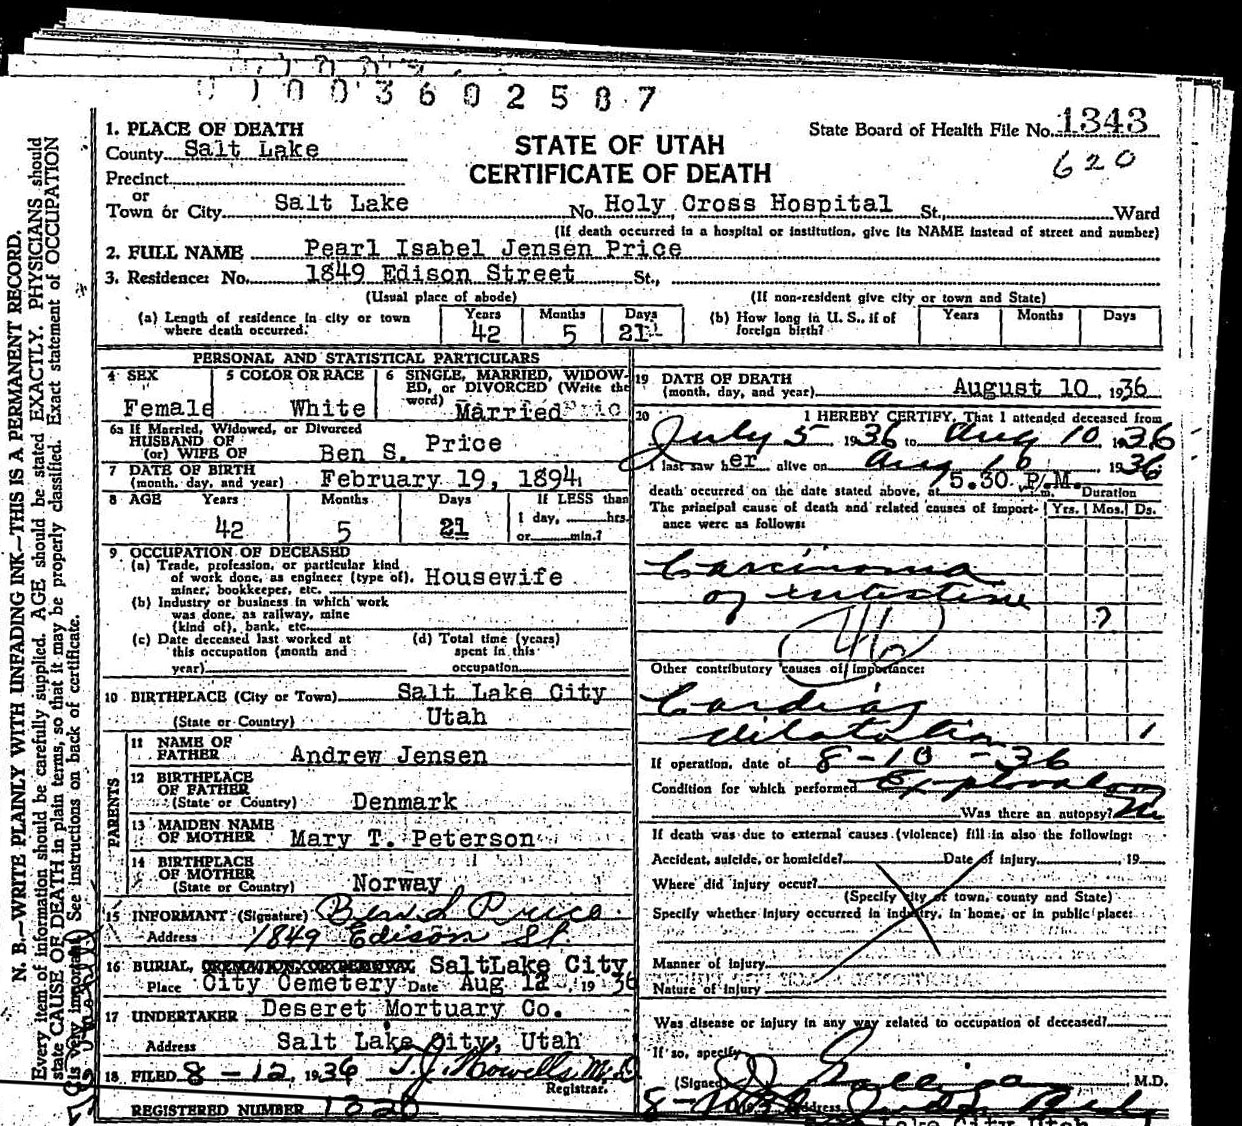 01003602587
State Board of Health File No. 1343
620
STATE OF UTAH
CERTIFICATE OF DEATH
1. PLACE OF DEATH
County Salt Lake
Precinct
or
Town or City Salt Lake No. Holy Cross Hospital St., Ward
(If death occurred in a hospital or institution, give its NAME instead of street and number)
2. FULL NAME Pearl Isabel Jensen Price
3. Residence: No. 1849 Edison Street St.,
(Usual place of abode) (If non-resident give city or town and State)
(a) Length of residence in city or town where death occurred. Years 42 Months 5 Days 21
(b) How long in U. S., if of foreign birth? Years Months Days
PERSONAL AND STATISTICAL PARTICULARS
4 SEX Female
5 COLOR OR RACE White
6 SINGLE, MARRIED, WIDOWED, or DIVORCED (Write the word) Married
6a If Married, Widowed, or Divorced
HUSBAND OF
(or) WIFE OF Ben S. Price
7 DATE OF BIRTH
(month, day, and year) February 19, 1894
8 AGE Years 42 Months 5 Days 21 If LESS than 1 day, hrs. or min.?
9 OCCUPATION OF DECEASED
(a) Trade, profession, or particular kind
of work done, as engineer (type of), Housewife
miner, bookkeeper, etc.
(b) Industry or business in which work
was done, as railway, mine
(kind of), bank, etc.
(c) Date deceased last worked at
this occupation (month and
year)
(d) Total time (years)
spent in this
occupation
10 BIRTHPLACE (City or Town) Salt Lake City
(State or Country) Utah
PARENTS
11 NAME OF
FATHER Andrew Jensen
12 BIRTHPLACE
OF FATHER
(State or Country) Denmark
13 MAIDEN NAME
OF MOTHER Mary T. Peterson
14 BIRTHPLACE
OF MOTHER
(State or Country) Norway
15 INFORMANT (Signature) Ben S Price
Address 1849 Edison St
16 BURIAL, SaltLake City
Place City Cemetery Date Aug 12, 1936
17 UNDERTAKER Deseret Mortuary Co.
Address Salt Lake City, Utah
18 FILED 8-12, 1936 T. J. Howells M.D.
Registrar.
REGISTERED NUMBER 1320
19 DATE OF DEATH
(month, day, and year) August 10, 1936
20 I HEREBY CERTIFY, That I attended deceased from
July 5, 1936 to Aug 10 1936
I last saw her alive on Aug 10, 1936
death occurred on the date stated above, at 5.30 P.M. m. Duration
The principal cause of death and related causes of importance were as follows: Yrs. Mos. Ds.
Carcinoma
of intestine
?
46
Other contributory causes of importance:
Cardiac
dilatation 1
If operation, date of 8-10-36
Condition for which performed Exploratory
Was there an autopsy? No
If death was due to external causes (violence) fill in also the following:
Accident, suicide, or homicide? Date of injury 19
Where did injury occur?
(Specify city or town, county and State)
Specify whether injury occurred in industry, in home, or in public place:
Manner of injury
Nature of injury
Was disease or injury in any way related to occupation of deceased?
If so, specify
(Signed) M.D.
Address
Lake City Utah
N. B.—WRITE PLAINLY WITH UNFADING INK—THIS IS A PERMANENT RECORD.
Every item of information should be carefully supplied. AGE should be stated EXACTLY. PHYSICIANS should
state CAUSE OF DEATH in plain terms, so that it may be properly classified. Exact statement of OCCUPATION
is very important. See instructions on back of certificate.